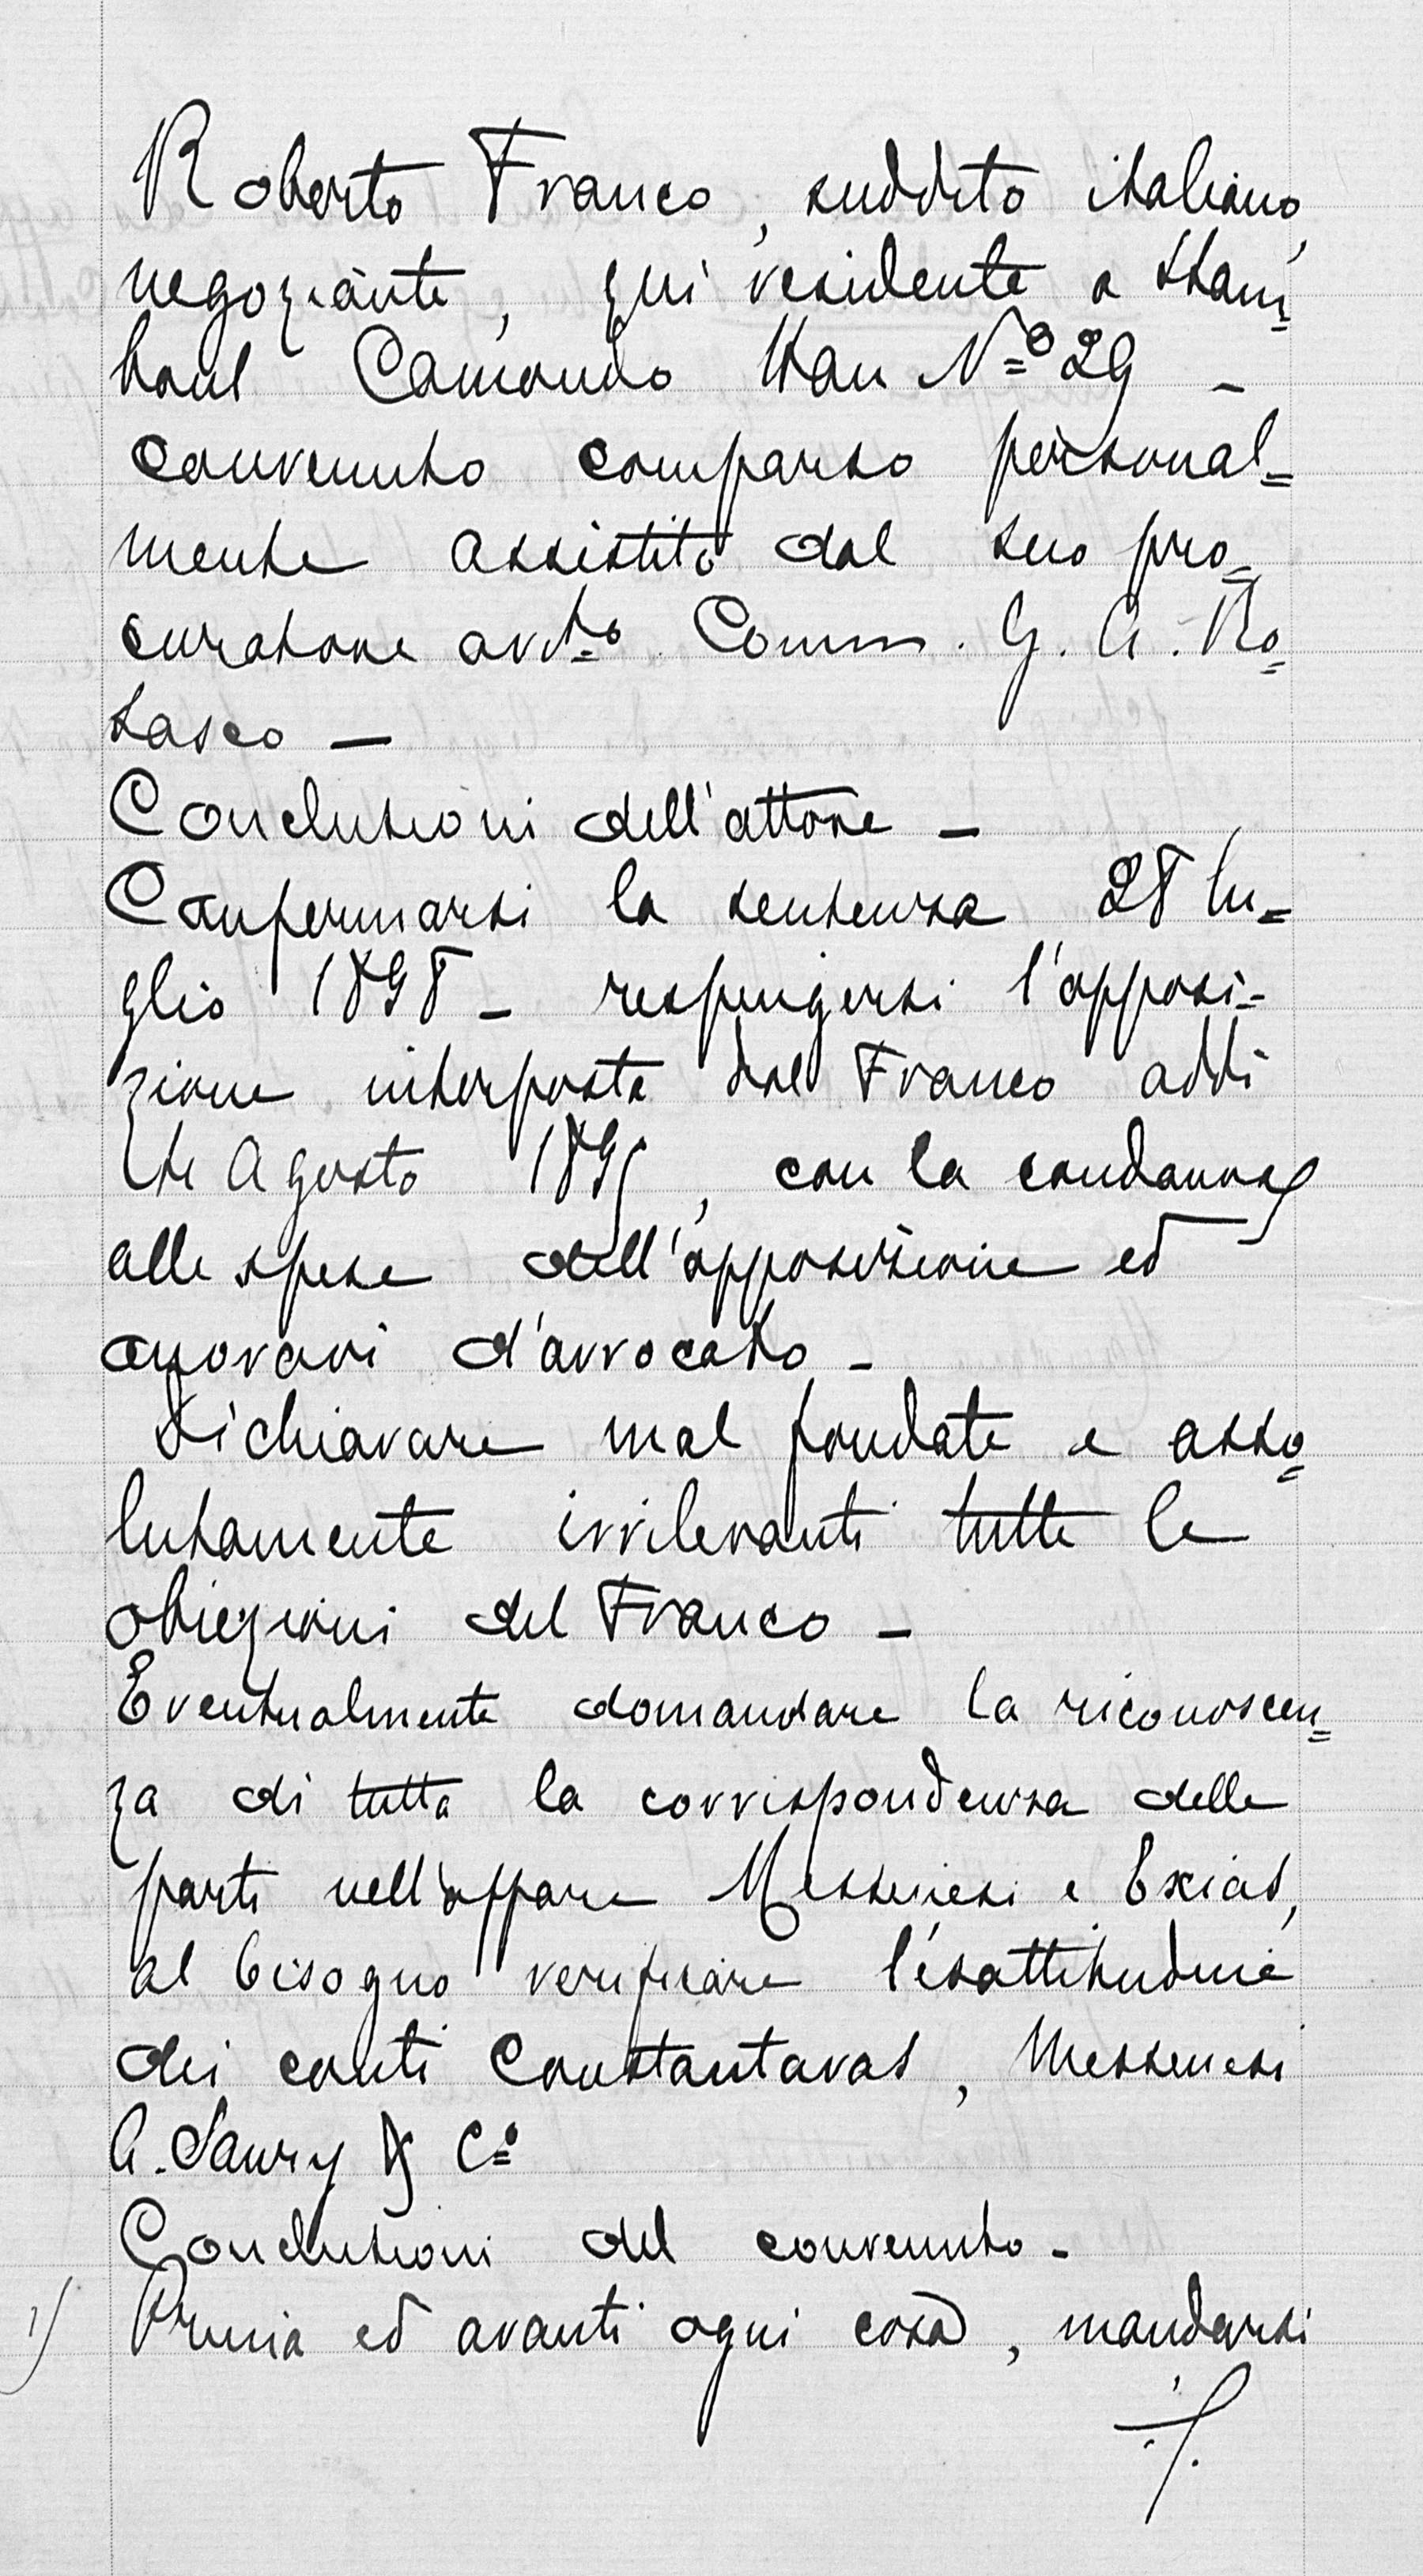 Roberto Franco, suddito italiano,
negoziante, qui residente a Stam=
boul Camondo Han Nº 29 –
convenuto comparso personal=
mente assistito dal suo pro=
curatore avvto Comm. G. A. Ro=
sasco –
Conclusioni dell'attore –
Confermarsi la sentenza 28 lu=
glio 1898 – respingersi l'opposi=
zione interposta dal Franco addì
Agosto 189, con la condanna
alle spese dell'opposizione ed
onorari d'avvocato –
Dichiarare mal fondate e asso=
lutamente irrilevanti tutte le
obiezioni del Franco –
Eventualmente domandare la riconoscen=
za di tutta la corrispondenza delle
parti nell'affare Messinesi e Exias,
al bisogno verificare l'esattitudine
dei conti Constantaras, Messinesi
A. Saury & Cº
Conclusioni del convenuto –
1) Prima ed avanti ogni cosa, mandarsi
./.